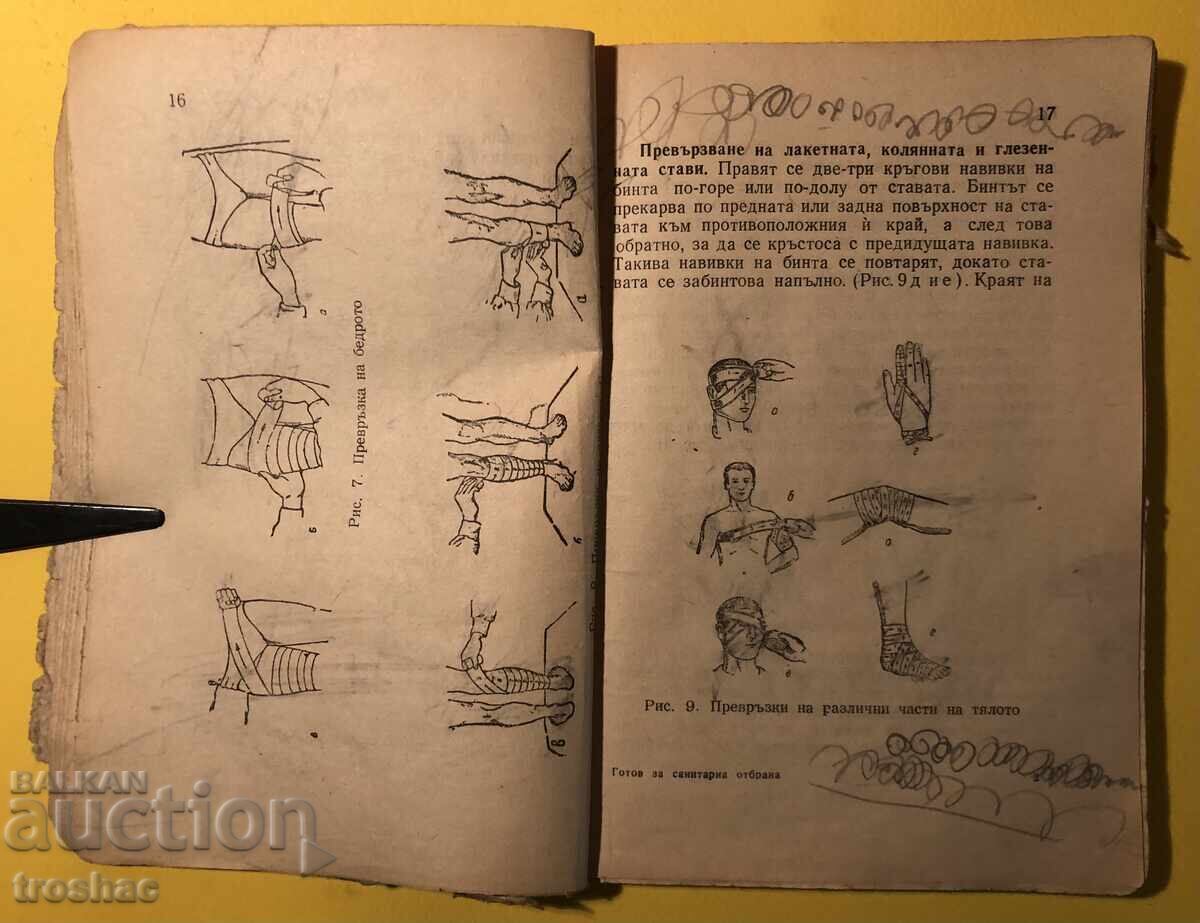 16
а
б
в
Рис. 7. Превръзка на бедрото
а
б
в
17
Превързване на лакетната, колянната и глезен-
ната стави. Правят се две-три кръгови навивки на
бинта по-горе или по-долу от ставата. Бинтът се
прекарва по предната или задна повърхност на ста-
вата към противоположния ѝ край, а след това
обратно, за да се кръстоса с предидущата навивка.
Такива навивки на бинта се повтарят, докато ста-
вата се забинтова напълно. (Рис. 9д и е). Краят на
а
г
б
в
Рис. 9. Превръзки на различни части на тялото
Готов за санитарна отбрана
BALKAN
auction
troshac